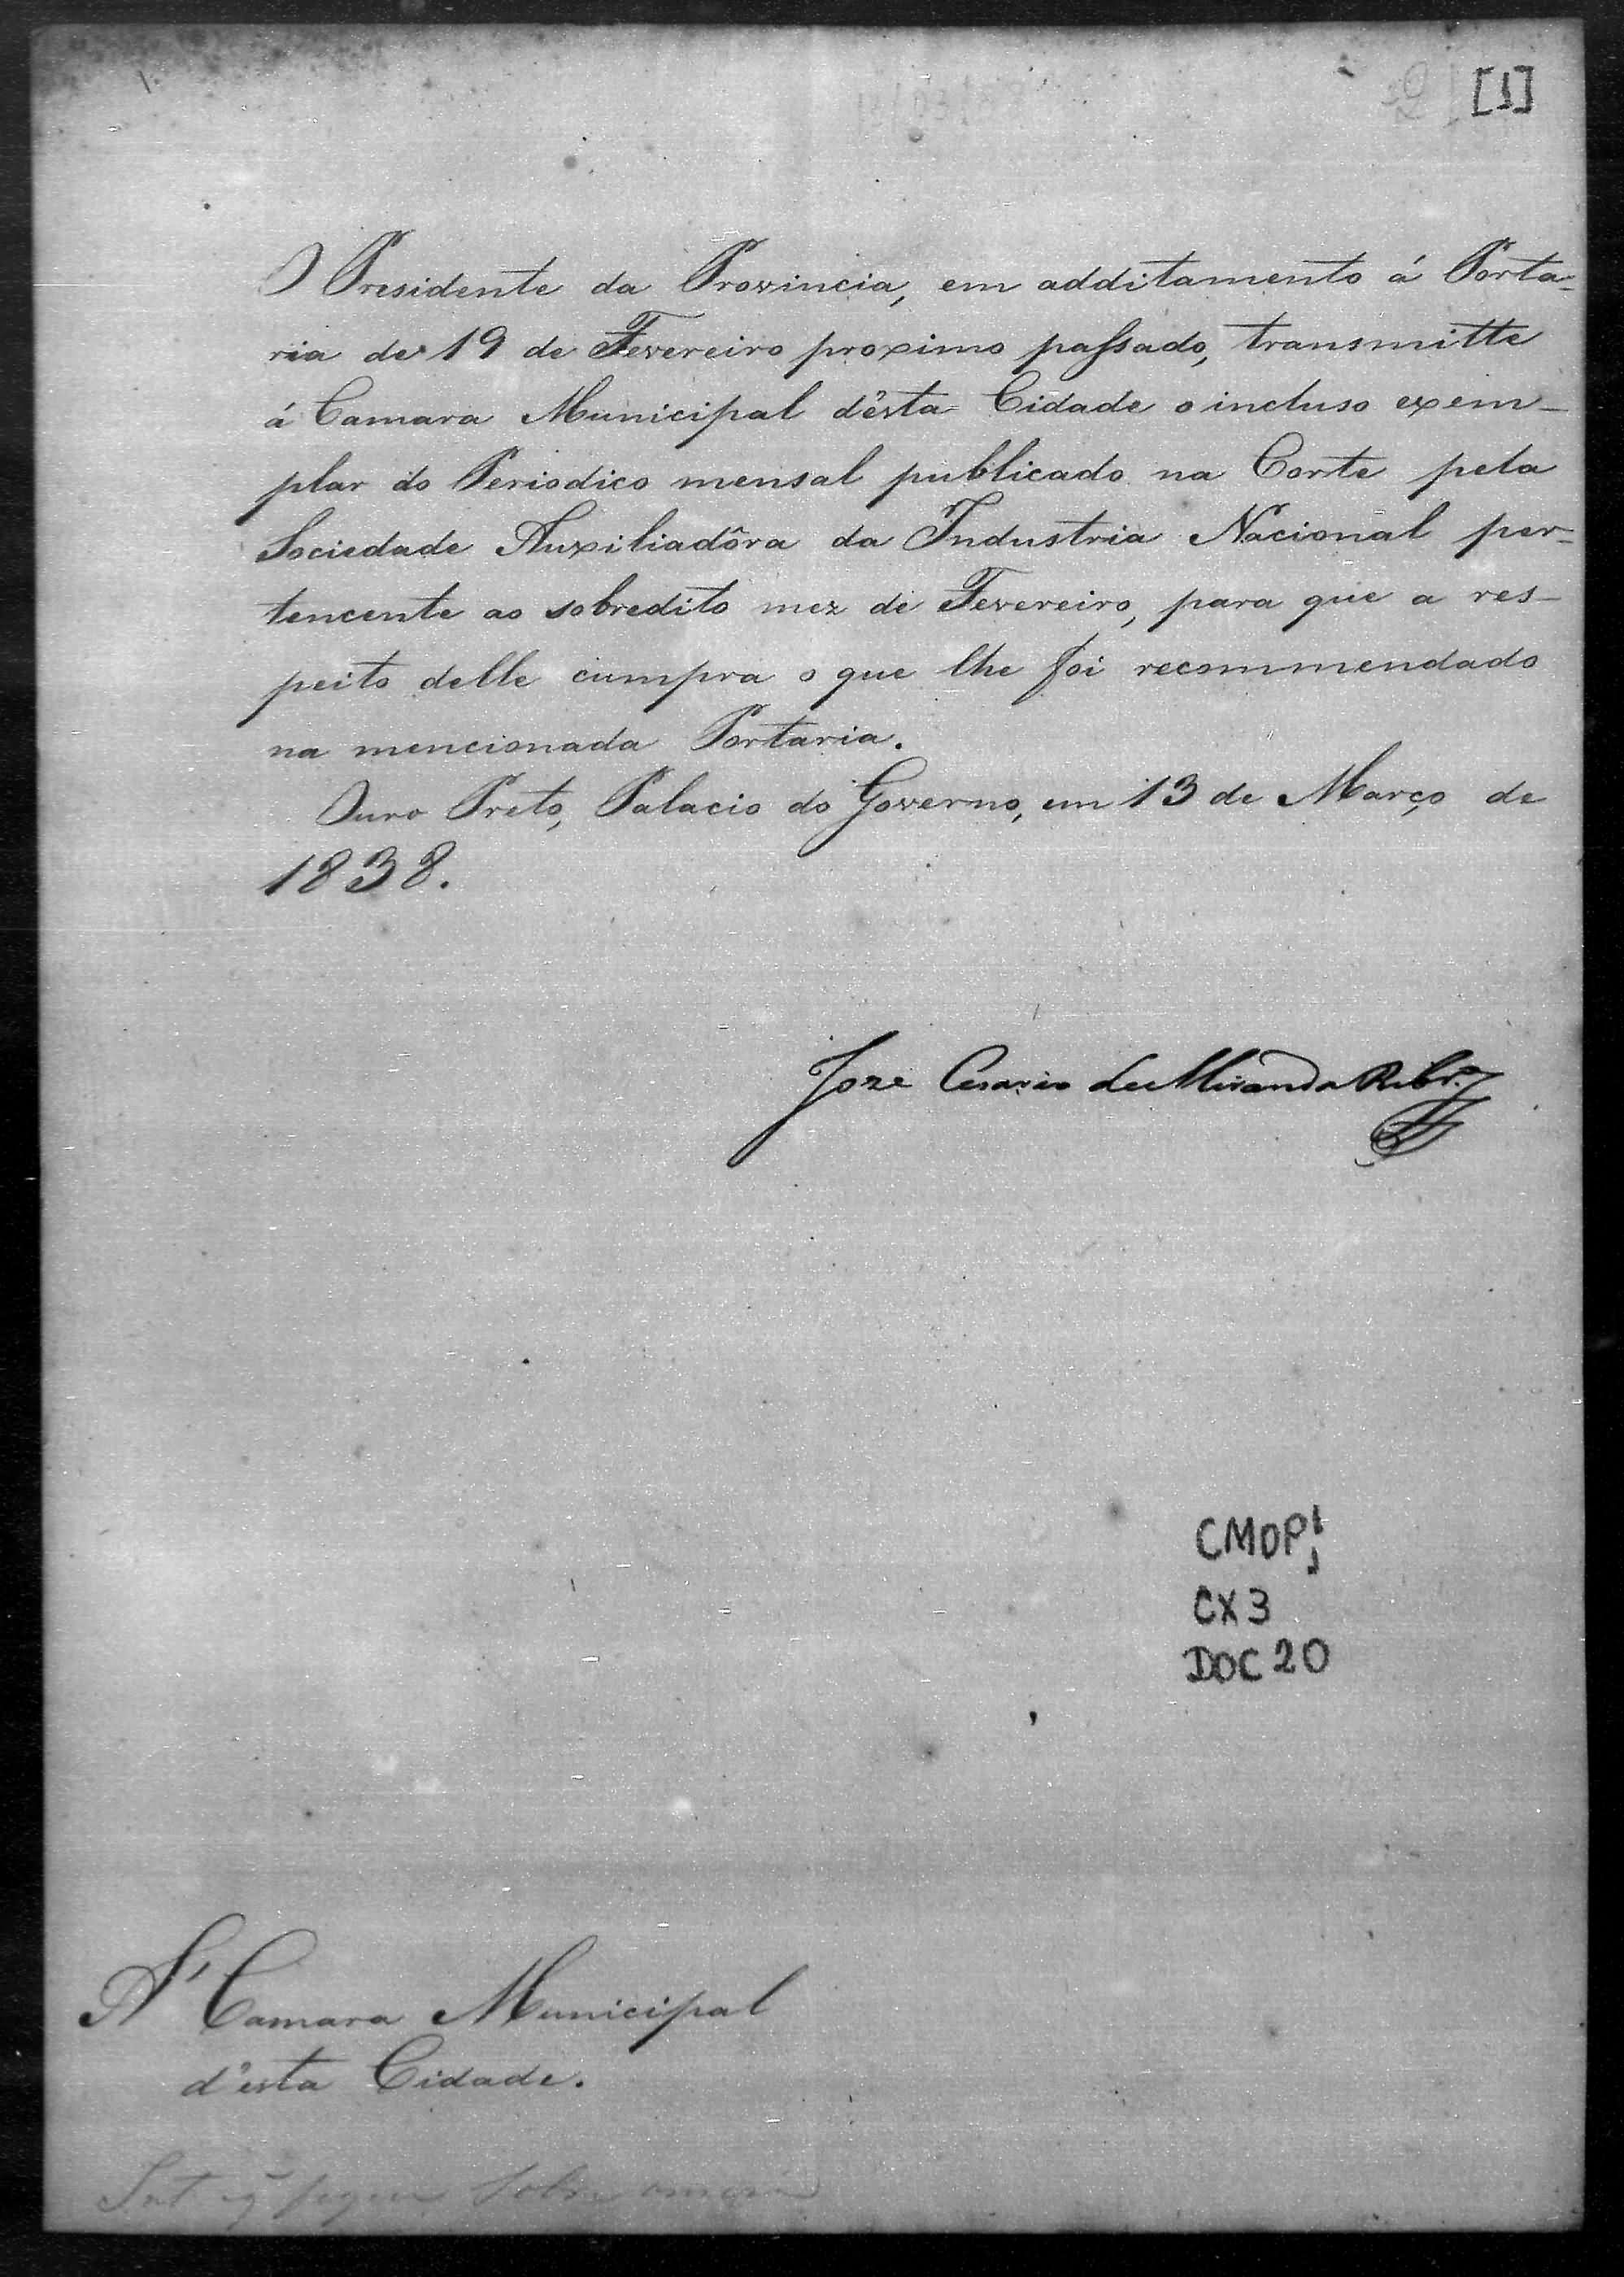 [1]
O Presidente da Provincia, em additamento á Porta=
ria de 19 de Fevereiro proximo passado, transmitte
á Camara Municipal d'ésta Cidade o incluso exem-
plar do Periodico mensal publicado na Corte pela
Sociedade Auxiliadôra da Industria Nacional per=
tencente ao sobredito mez de Fevereiro, para que a res-
peito delle cumpra o que lhe foi recommendado
na mencionada Portaria.
Ouro Preto, Palacio do Governo, em 13 de Março de
1838.
Joze Cesario de Miranda Ribr.º
CMOP
CX 3
DOC 20
A' Camara Municipal
d'ésta Cidade.